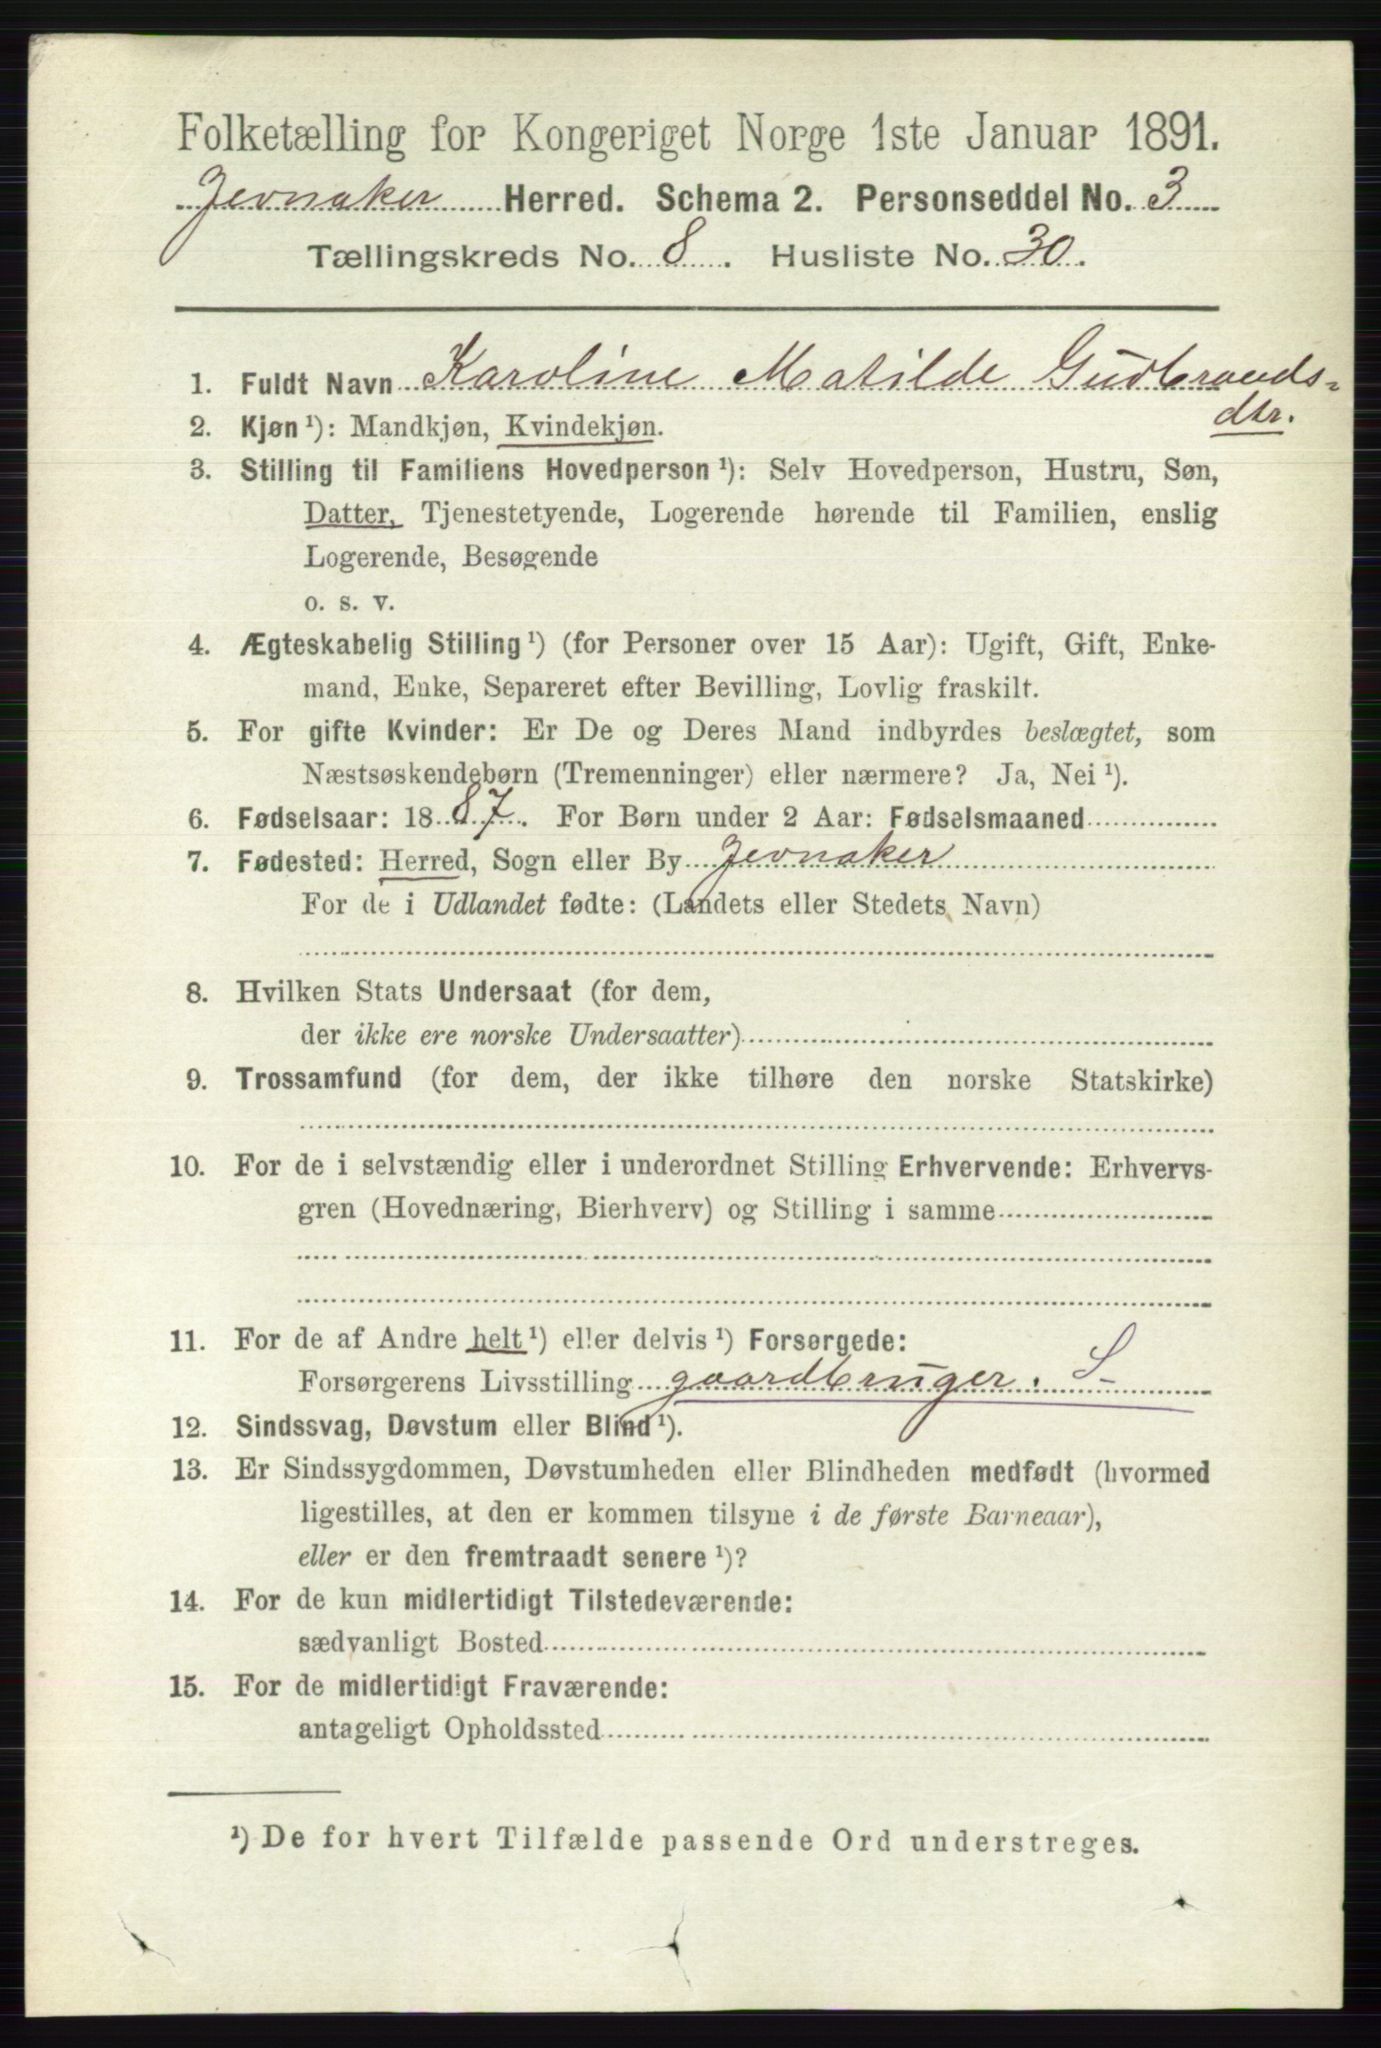 Folketælling for Kongeriget Norge 1ste Januar 1891.
Jevnaker Herred. Schema 2. Personseddel No. 3
Tællingskreds No. 8. Husliste No. 30.
1. Fuldt Navn Karoline Matilde Gudbrands-
dtr.
2. Kjøn ¹): Mandkjøn, Kvindekjøn.
3. Stilling til Familiens Hovedperson ¹): Selv Hovedperson, Hustru, Søn,
Datter, Tjenestetyende, Logerende hørende til Familien, enslig
Logerende, Besøgende
o. s. v.
4. Ægteskabelig Stilling ¹) (for Personer over 15 Aar): Ugift, Gift, Enke-
mand, Enke, Separeret efter Bevilling, Lovlig fraskilt.
5. For gifte Kvinder: Er De og Deres Mand indbyrdes beslægtet, som
Næstsøskendebørn (Tremenninger) eller nærmere? Ja, Nei ¹).
6. Fødselsaar: 1887. For Børn under 2 Aar: Fødselsmaaned
7. Fødested: Herred, Sogn eller By Jevnaker
For de i Udlandet fødte: (Landets eller Stedets Navn)
8. Hvilken Stats Undersaat (for dem,
der ikke ere norske Undersaatter)
9. Trossamfund (for dem, der ikke tilhøre den norske Statskirke)
10. For de i selvstændig eller i underordnet Stilling Erhvervende: Erhvervs-
gren (Hovednæring, Bierhverv) og Stilling i samme
11. For de af Andre helt ¹) eller delvis ¹) Forsørgede:
Forsørgerens Livsstilling gaardbruger. S-
12. Sindssvag, Døvstum eller Blind ¹).
13. Er Sindssygdommen, Døvstumheden eller Blindheden medfødt (hvormed
ligestilles, at den er kommen tilsyne i de første Barneaar),
eller er den fremtraadt senere ¹)?
14. For de kun midlertidigt Tilstedeværende:
sædvanligt Bosted
15. For de midlertidigt Fraværende:
antageligt Opholdssted
¹) De for hvert Tilfælde passende Ord understreges.